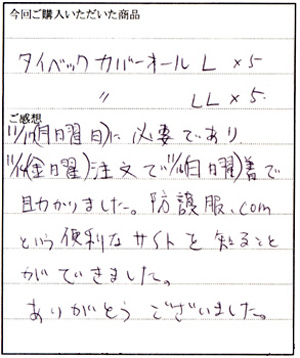 今回ご購入いただいた商品
タイベックカバーオール L ×5
〃 LL ×5
ご感想
11/17(月曜日)に必要であり
11/14(金曜)注文で11/16(日曜)着で
助かりました。防護服.com
という便利なサイトを知ること
ができました。
ありがとうございました。